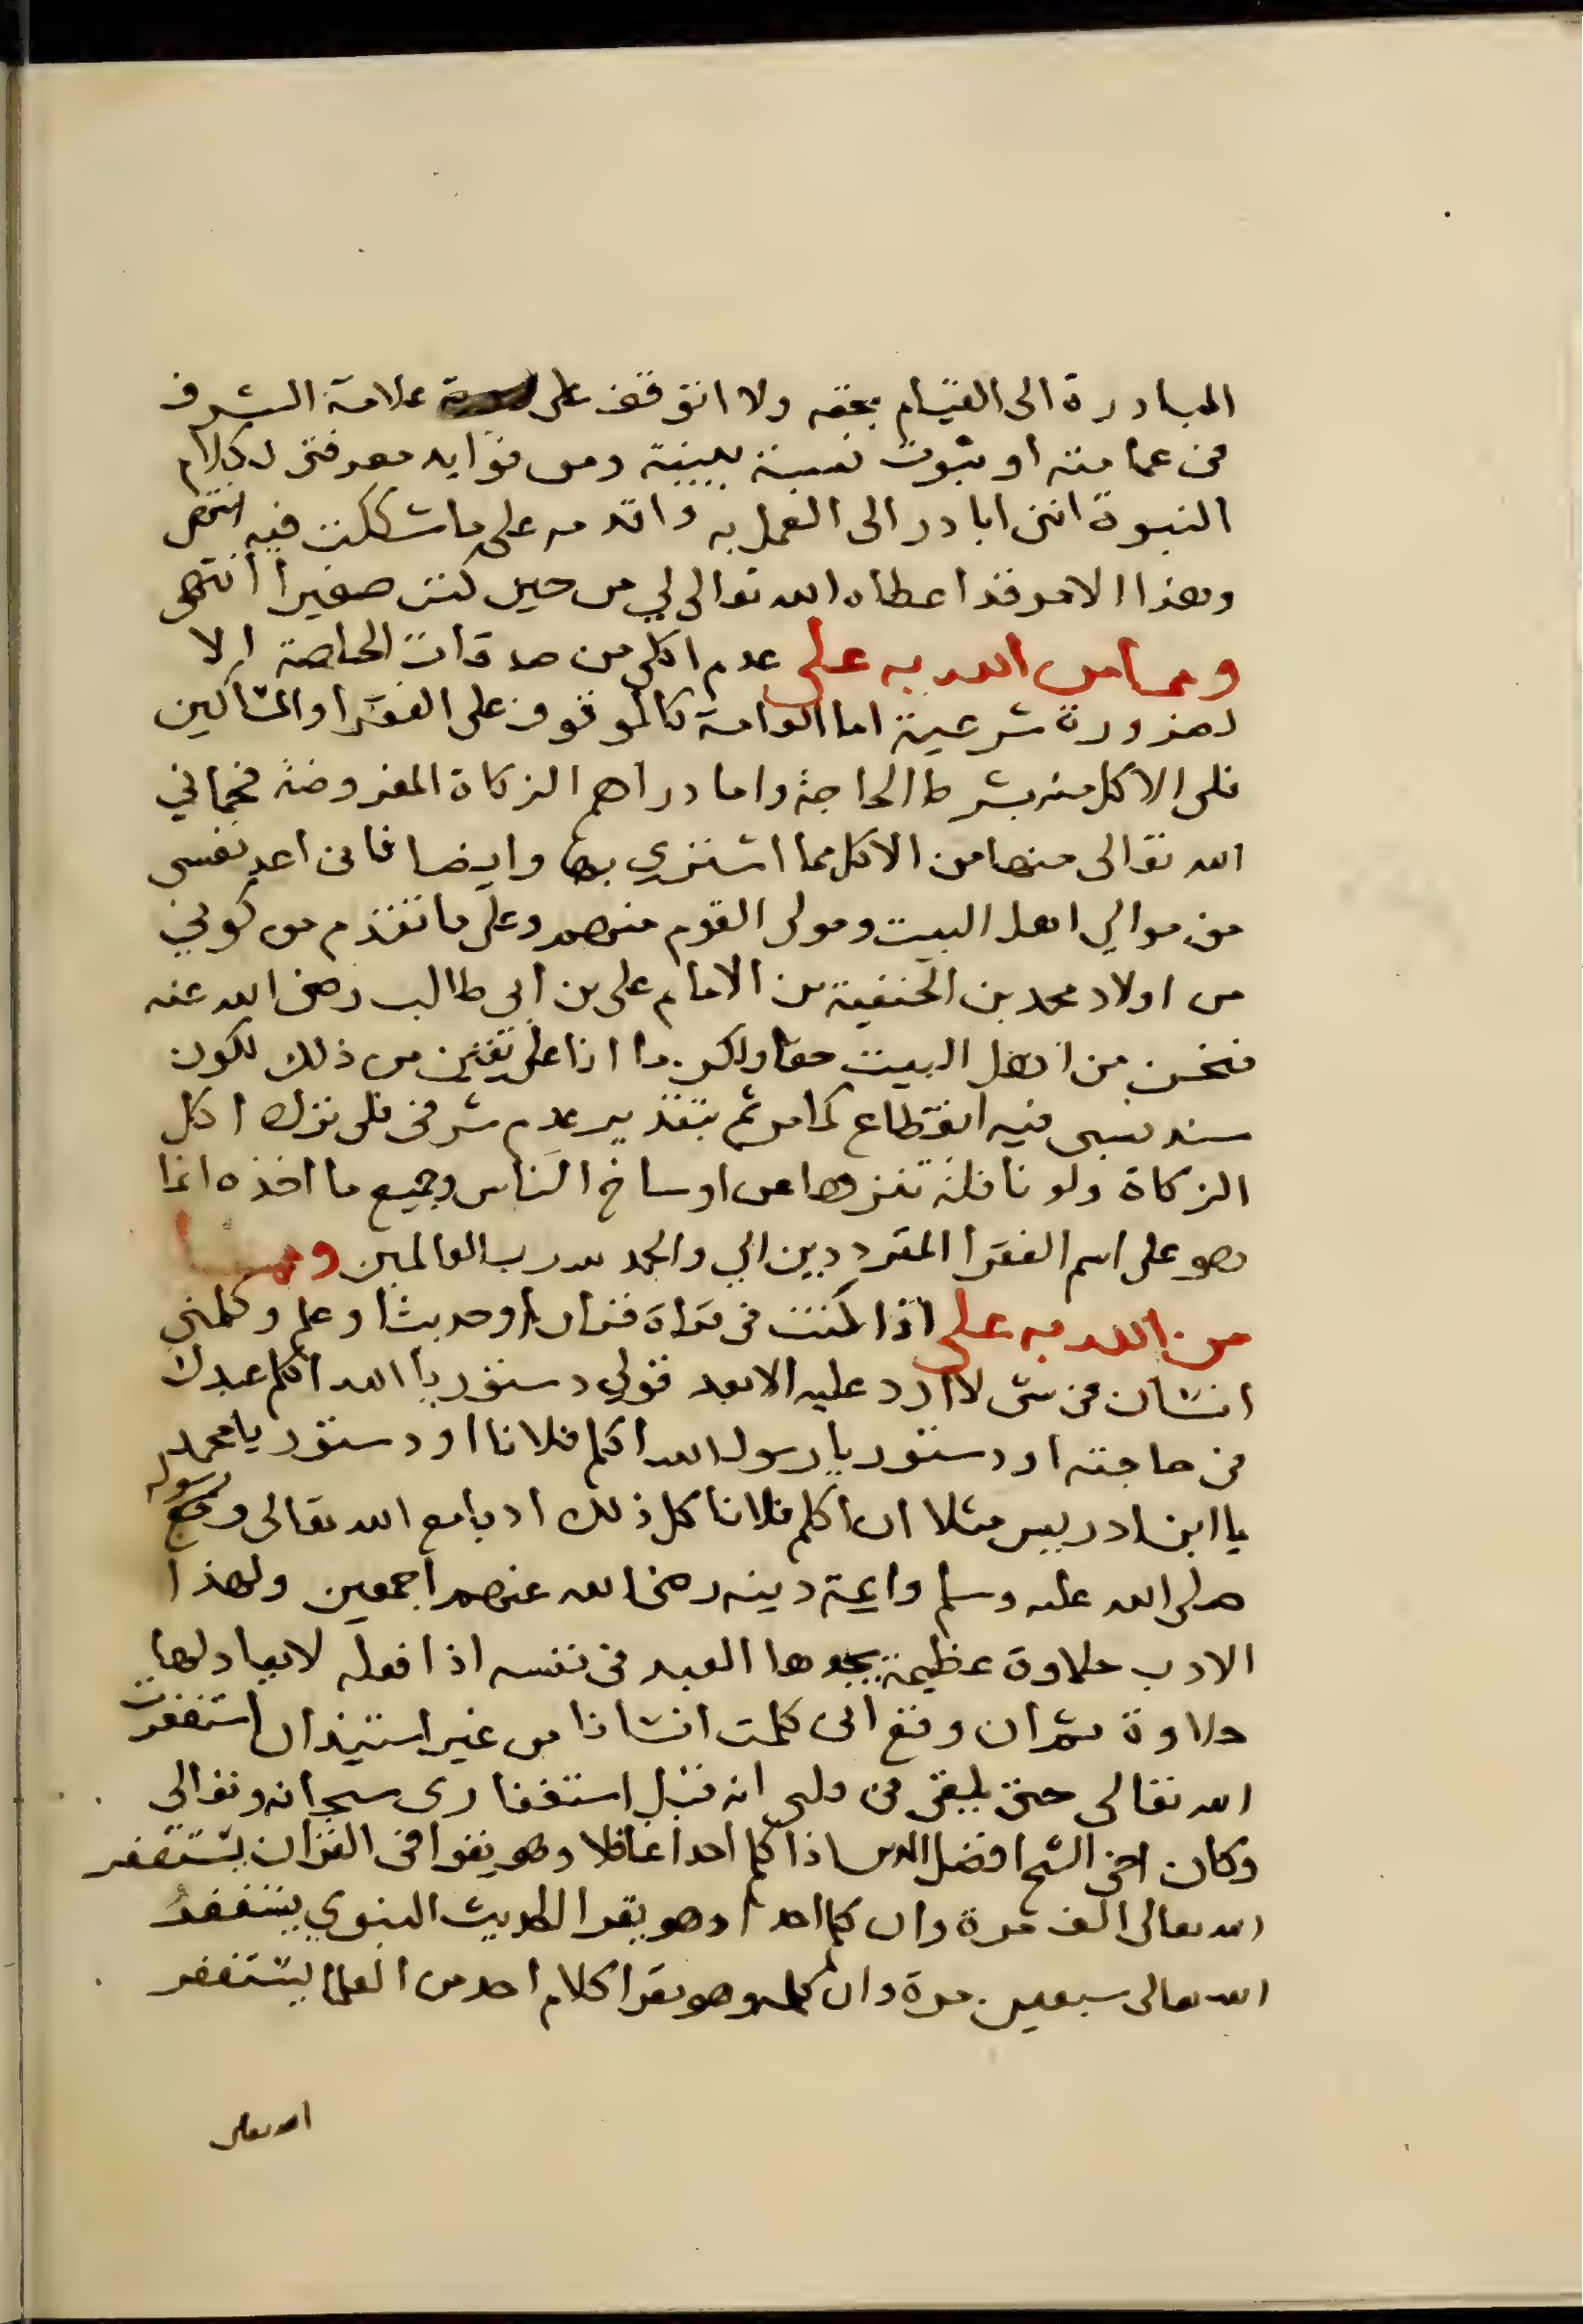 المبادرة الى القيام بحقه ولا اتوقف على علامة الشرف
فى عمامته او ثبوت نسبة ببينة ومن فوايد معرفتى لكلام
النبوة اننى ابادر الى العمل به واقدمه على ما شككت فيه انتهى
وهذا الامر قد اعطاه الله تعالى لي من حين كنت صغيرا انتهى
ومما من الله به على عدم اكلى من صدقات الخاصة الا
لضرورة شرعية اما العامة كالموقوف على الفقرا والمساكين
فلى الاكل منه بشرط الحاجة واما دراهم الزكاة المفروضة فحمانى
الله تعالى منها من الاكل مما اشتري بها وايضا فانى اعد نفسى
من موالي اهل البيت ومولى القوم منهم وعلى ما تقدم من كوني
من اولاد محمد بن الحنفية بن الامام على بن ابى طالب رضى الله عنه
فنحن من اهل البيت حقا ولكن ما انا على يقين من ذلك لكون
سند نسبى فيه انقطاع كما مر ثم بتقدير عدم شرفى فلى ترك اكل
الزكاة ولو نافلة تنزها عن اوساخ الناس وجميع ما اخذه انما
هو على اسم الفقرا المترددين الي والحمد لله رب العالمين ومما
من الله به على اذا كنت فى قراة قران او حديث او علم وكلمنى
انسان فى شى لا ارد عليه الا بعد قولي دستور يا الله اكلم عبدك
فى حاجته او دستور يا رسول الله اكلم فلانا او دستور يا محمد
يا ابن ادريس مثلا ان اكلم فلانا كل ذلك ادبا مع الله تعالى ومع رسوله
صلى الله عليه وسلم وايمة دينه رضى الله عنهم اجمعين ولهذا
الادب حلاوة عظيمة يجدها العبد فى نفسه اذا فعله لا يعادلها
حلاوة ثم ان وقع انى كلمت انسانا من غير استيذان استغفرت
الله تعالى حتى يلقى فى قلبى انه قبل استغفارى سبحانه وتعالى
وكان اخى الشيخ افضل الدين اذا كلم احدا غافلا وهو يقرا فى القران يستغفر
الله تعالى الف مرة وان كلم احدا وهو يقرا الحديث النبوي يستغفر
الله تعالى سبعين مرة وان كلمه وهو يقرا كلام احد من العلما يستغفر
الله تعالى